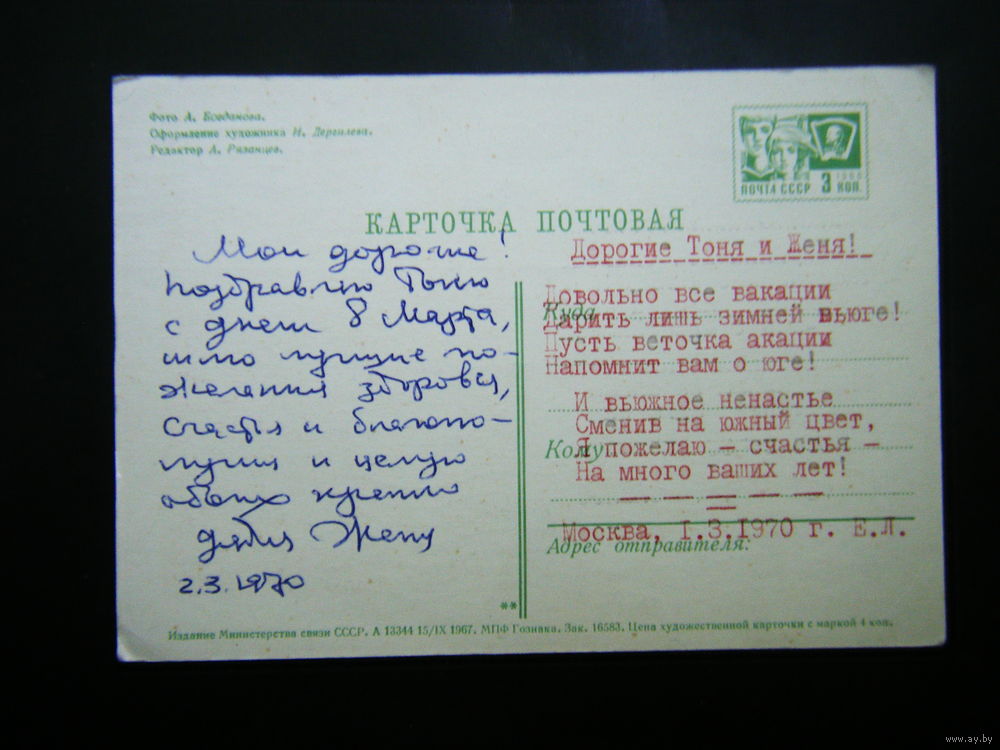 Фото А. Богданова.
Оформление художника Н. Дергилева.
Редактор А. Рязанцев.
ПОЧТА СССР 3 КОП.
1966
КАРТОЧКА ПОЧТОВАЯ
Мои дорогие!
Поздравляю Тоню
с днем 8 Марта,
шлю лучшие по-
желания здоровья,
счастья и благопо-
лучия и целую
обоих крепко
дядя Женя
2.3.1970
Дорогие Тоня и Женя!
Довольно все вакации
Куда
Дарить лишь зимней вьюге!
Пусть веточка акации
Напомнит вам о юге!
И вьюжное ненастье
Сменив на южный цвет,
Кому
Я пожелаю – счастья –
На много ваших лет!
Москва, 1.3.1970 г. Е.Л.
Адрес отправителя:
**
Издание Министерства связи СССР. А 13344 15/IX 1967. МПФ Гознака. Зак. 16583. Цена художественной карточки с маркой 4 коп.
www.ay.by